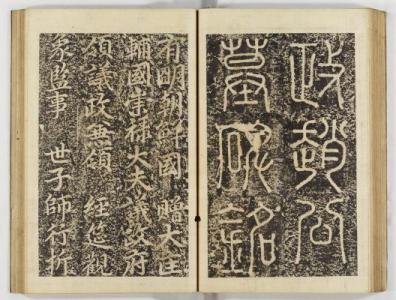 政趙公
墓碑銘
有明朝鮮國 贈大匡
輔國崇祿大夫議政府
領議政兼領 經筵觀
象監事 世子師行折